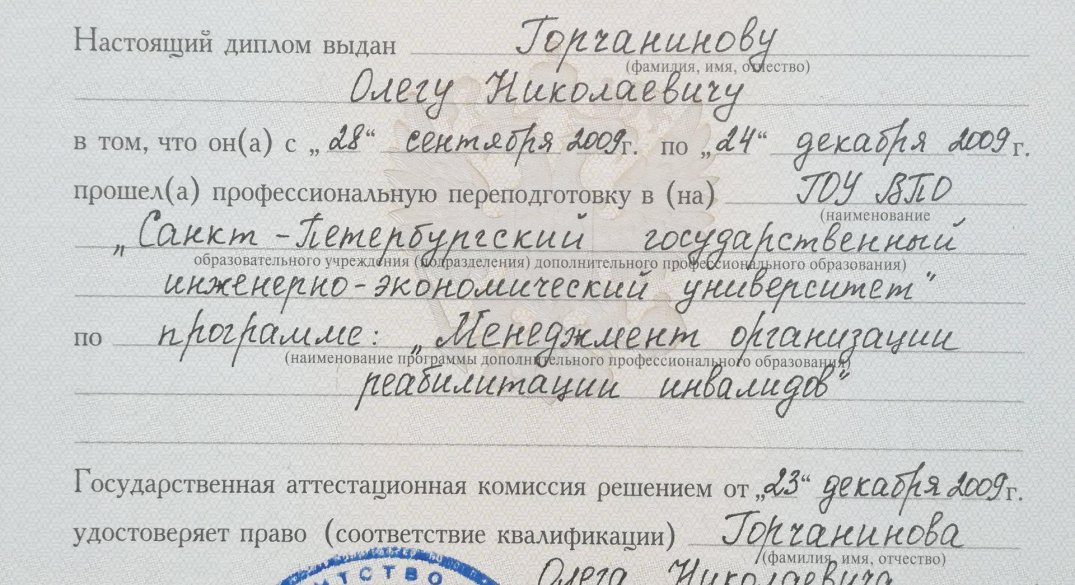 Настоящий диплом выдан Горчанинову
(фамилия, имя, отчество)
Олегу Николаевичу
в том, что он(а) с „28“ сентября 2009г. по „24“ декабря 2009г.
прошел(а) профессиональную переподготовку в (на) ГОУ ВПО
(наименование
„Санкт-Петербургский государственный
образовательного учреждения (подразделения) дополнительного профессионального образования)
инженерно-экономический университет“
по программе: „Менеджмент организации
(наименование программы дополнительного профессионального образования)
реабилитации инвалидов“
Государственная аттестационная комиссия решением от „23“ декабря 2009г.
удостоверяет право (соответствие квалификации) Горчанинова
(фамилия, имя, отчество)
Олега Николаевича